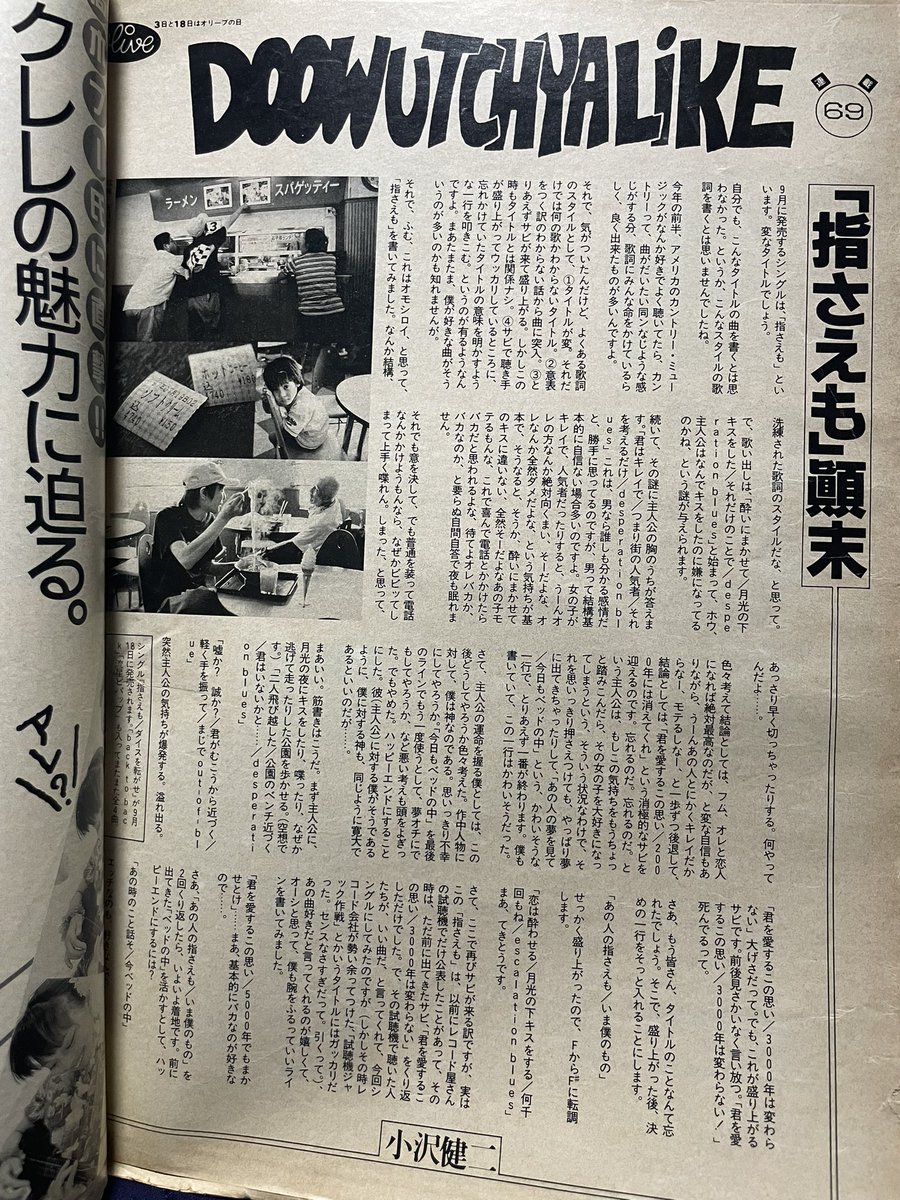 3日と18日はオリーブの日
Olive
DOOWUTCHYALiKE
連載
69
「指さえも」顛末
9月に発売するシングルは、「指さえも」とい
います。変なタイトルでしょう。
自分でも、こんなタイトルの曲を書くとは思
わなかった。というか、こんなスタイルの歌
詞を書くとは思いませんでしたね。
今年の前半、アメリカのカントリー・ミュー
ジックがなんか好きでよく聴いてたら、カン
トリーって、曲がだいたい同ンなじような感
じがする分、歌詞にみんな命をかけているら
しく、良く出来たものが多いんですよ。
それで、気がついたんだけど、よくある歌詞
のスタイルとして、①タイトルが変。それだ
けでは何の歌かわからないタイトル。②意表
をつく訳のわからない話から曲に突入。③と
りあえずサビが来て盛り上がる。しかしこの
時もタイトルとは関係ナシ。④サビで聴き手
が盛り上がってウッカリしているところに、
忘れかけていたタイトルの意味を明かすよう
な一行を叩きこむ。というのが有るようなん
ですよ。まあたまたま、僕が好きな曲がそう
いうのが多いのかも知れませんが。
それで、ふむ、これはオモシロイ、と思って、
「指さえも」を書いてみました。なんか結構、
ラーメン
スパゲッティー
13
ホットコーヒー
¥240
ソフトクリーム
¥150
洗練された歌詞のスタイルだな、と思って。
で、歌い出しは、「酔いにまかせて/月光の下
キスをした/それだけのことで/despe
ration blues」と始まって、ホウ、
主人公はなんでキスをしたのに嫌になってる
のかね、という謎が与えられます。
続いて、その謎に主人公の胸のうちが答えま
す。「君はキレイで/つまり街の人気者/それ
を考えるだけ/desperation bl
ues」これは、男なら誰しも分かる感情だ
と、勝手に思ってるのですが、男って結構基
本的に自信ない場合多いのですよ。女の子が
キレイで、人気者だったりすると、うーんオ
レの方なんか絶対向くまい、そーだよな、オ
レなんか全然ダメだよな、という気持ちが基
本で、そうなると、そうか、酔いにまかせて
のキスに違いない、全然そーだよなあの子モ
テるもんな、これで喜んで電話とかかけたら
バカだと思われるよな、待てよオレバカか、
バカなのか、と要らぬ自問自答で夜も眠れま
せん。
それでも意を決して、でも普通を装って電話
なんかかけようもんなら、なぜかビビッてし
まって上手く喋れん。しまった、と思って、
あっさり早く切っちゃったりする。何やって
んだよ……。
色々考えて結論としては、フム、オレと恋人
になれば絶対最高なのだが、と変な自信もあ
りながら、うーんあの人とにかくキレイだか
らなー、モテるしなー、と一歩ずつ後退して、
結論としては、「君を愛するこの思い/200
0年には消えてくれ」という消極的なサビを
迎えるのです。忘れるのだ。忘れるのだ。と
いう主人公は、もしこの気持ちをもうちょっ
と踏みこんだら、その女の子を大好きになっ
てしまうという、そういう状況なわけで、そ
れを思いっきり押さえつけても、やっぱり夢
に出てきちゃったりして、「あの人の夢を見て
/今日もベッドの中」という、かわいそうな
一行で、とりあえず一番が終わります。僕も
書いていて、この一行はかわいそうだった。
さて、主人公の運命を握る僕としては、この
後どうしてやろうか色々考えた。作中人物に
対して、僕は神なのである。思いっきり不幸
にしてやろうか。「今日もベッドの中」を最後
のラインでもう一度使うとして、夢オチにで
もしてやろうか、など悪い考えも頭をよぎっ
た。でもやめた。ハッピーエンドにすること
にした。彼(主人公)に対する僕がそうである
ように、僕に対する神も、同じように寛大で
あるといいのだが……。
まあいい。筋書きはこうだ。まず主人公に、
月光の夜にキスをしたり、喋ったり、なぜか
逃げて走ったりした公園を歩かせる。(空想で
す。)「二人飛び越した/公園のベンチ近づく
/君はいないかと―/desperati
on blues」
「嘘か? 誠か?/君がむこうから近づく/
軽く手を振って/まじでout of ribl
ue」
突然主人公の気持ちが爆発する。溢れ出る。
シングル「指さえも/ダイスを転がせ」が9月
18日に発売されます。「back to bac
k」
「君を愛するこの思い/3000年は変わら
ない」大げさだって。でも、これが盛り上がる
サビです。前後見さかいなく言い放つ。「君を愛
するこの思い/3000年は変わらない!」
死んでるって。
さあ、もう皆さん、タイトルのことなんて忘
れたでしょう。そこで、盛り上がった後、決
めの一行をそっと入れることにします。
「あの人の指さえも/いま僕のもの」
せっかく盛り上がったので、FからF#に転調
します。
「恋は酔わせる/月光の下キスをする/何千
回もね/escalation blues」
まあ、てきとうです。
さて、ここで再びサビが来る訳ですが、実は
この「指さえも」は、以前にレコード屋さん
の試聴機でだけ公表したことがあって、その
時は、ただ前に出てきたサビ、「君を愛するこ
の思い/3000年は変わらない」をくり返
しただけでした。で、その試聴機で聴いた人
たちが、いい曲だ、と言ってくれて、今回シ
ングルにしてみたのですが(しかしその時レ
コード会社が勢い余ってつけた、「試聴機ジャ
ック作戦」とかいうタイトルにはガッカリだ
った。センスなさすぎだって。引くって)、
あの曲好きだと言ってくれるのが嬉しくて、
オーシと思って、僕も腕をふるっていいライ
ンを書いてみました。
「君を愛するこの思い/5000年でもまか
せとけ」……まあ、基本的にバカなのが好きな
ので……。
さあ、「あの人の指さえも/いま僕のもの」を
2回くり返したら、いよいよ着地です。前に
出てきた、「ベッドの中」を活かすとして、ハッ
ピーエンドにするには?
「あの時のこと話そ/今ベッドの中」
小沢健二
クレしの魅力に迫る。